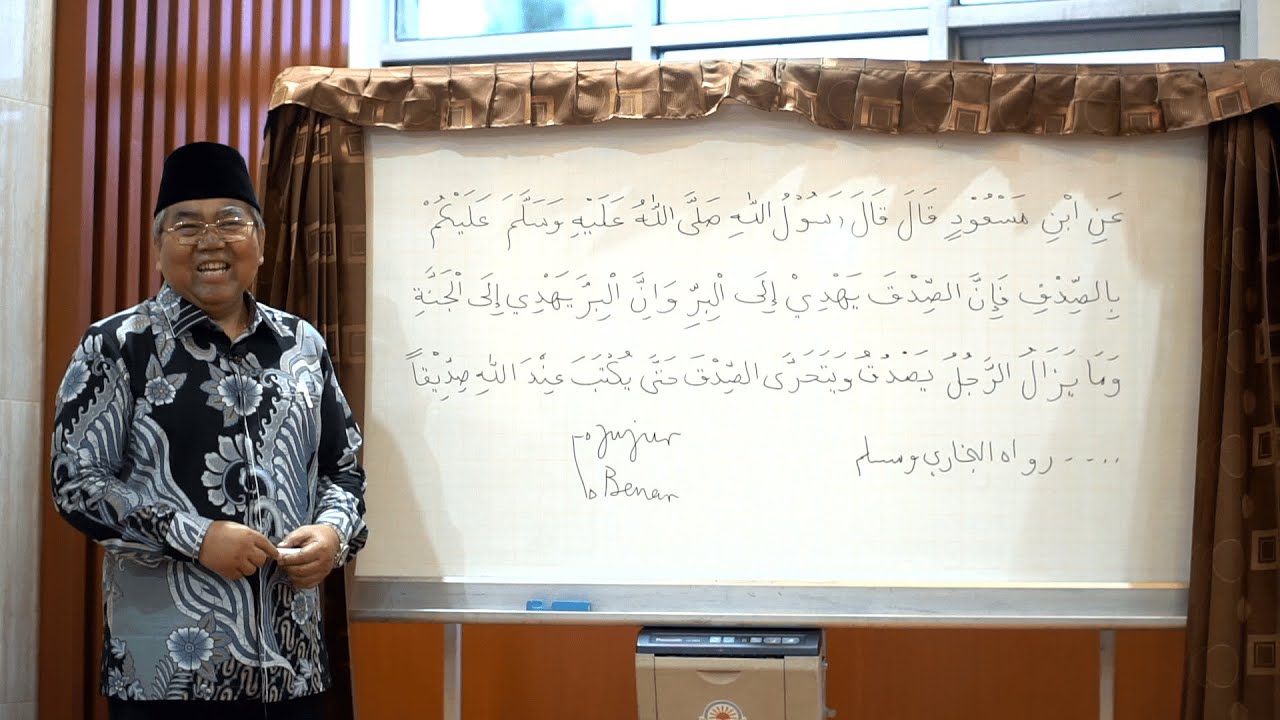 عَنِ ابْنِ مَسْعُوْدٍ قَالَ قَالَ رَسُوْلُ اللّٰهِ صَلَّى اللّٰهُ عَلَيْهِ وَسَلَّمَ عَلَيْكُمْ
بِالصِّدْقِ فَإِنَّ الصِّدْقَ يَهْدِيْ إِلَى الْبِرِّ وَإِنَّ الْبِرَّ يَهْدِي إِلَى الْجَنَّةِ
وَمَا يَزَالُ الرَّجُلُ يَصْدُقُ وَيَتَحَرَّى الصِّدْقَ حَتَّى يُكْتَبَ عِنْدَ اللّٰهِ صِدِّيْقًا
.... رواه البخاري ومسلم
Jujur
Benar
Panasonic